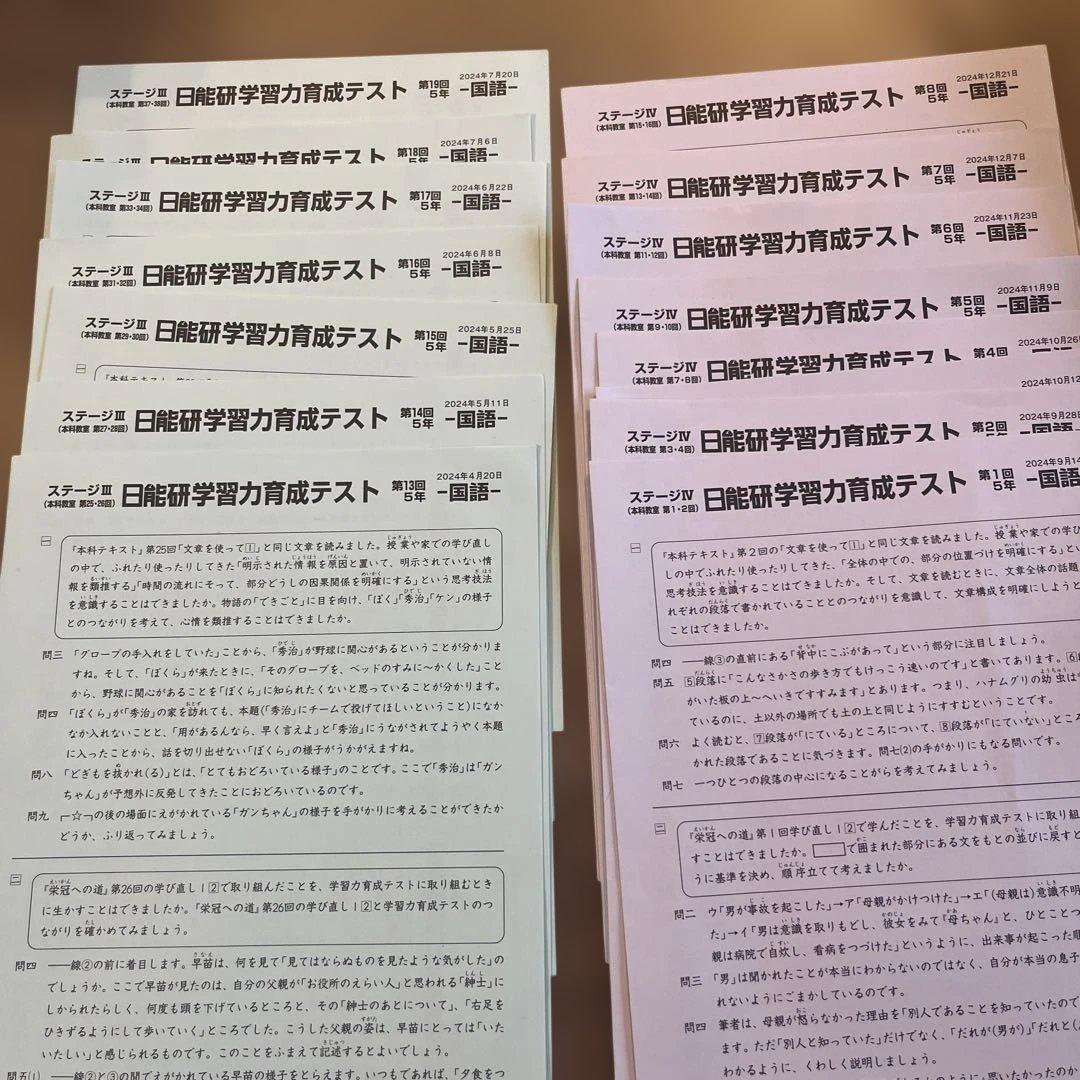 2024年7月20日
ステージⅢ 日能研学習力育成テスト 第19回 -国語-
(本科教室 第37・38回) 5年
2024年7月6日
ステージⅢ 日能研学習力育成テスト 第18回 -国語-
5年
2024年6月22日
ステージⅢ 日能研学習力育成テスト 第17回 -国語-
(本科教室 第33・34回) 5年
2024年6月8日
ステージⅢ 日能研学習力育成テスト 第16回 -国語-
(本科教室 第31・32回) 5年
2024年5月25日
ステージⅢ 日能研学習力育成テスト 第15回 -国語-
(本科教室 第29・30回) 5年
一
2024年5月11日
ステージⅢ 日能研学習力育成テスト 第14回 -国語-
(本科教室 第27・28回) 5年
2024年4月20日
ステージⅢ 日能研学習力育成テスト 第13回 -国語-
(本科教室 第25・26回) 5年
一
『本科テキスト』第25回「文章を使って1」と同じ文章を読みました。授業や家での学び直し
の中で、ふれたり使ったりしてきた「明示された情報を原因と置いて、明示されていない情
報を類推する」「時間の流れにそって、部分どうしの因果関係を明確にする」という思考技法
を意識することはできましたか。物語の「できごと」に目を向け、「ぼく」「秀治」「ケン」の様子
とのつながりを考えて、心情を類推することはできましたか。
問三 「グローブの手入れをしていた」ことから、「秀治」が野球に関心があるということが分かりま
すね。そして、「ぼくら」が来たときに、「そのグローブを、ベッドのすみに〜かくした」こと
から、野球に関心があることを「ぼくら」に知られたくないと思っていることが分かります。
問四 「ぼくら」が「秀治」の家を訪れても、本題(「秀治」にチームで投げてほしいということ)になか
なか入れないことと、「用があるんなら、早く言えよ」と「秀治」にうながされてようやく本題
に入ったことから、話を切り出せない「ぼくら」の様子がうかがえますね。
問八 「どぎもを抜かれ(る)」とは、「とてもおどろいている様子」のことです。ここで「秀治」は「ガン
ちゃん」が予想外に反発してきたことにおどろいているのです。
問九 ┌☆┐の後の場面にえがかれている「ガンちゃん」の様子を手がかりに考えることができたか
どうか、ふり返ってみましょう。
二
『栄冠への道』第26回の学び直し1 2で取り組んだことを、学習力育成テストに取り組むとき
に生かすことはできましたか。『栄冠への道』第26回の学び直し1 2と学習力育成テストのつ
ながりを確かめてみましょう。
問四 ――線②の前に着目します。早苗は、何を見て「見てはならぬものを見たような気がした」の
でしょうか。ここで早苗が見たのは、自分の父親が「お役所のえらい人」と思われる「紳士」に
しかられたらしく、何度も頭を下げているところと、その「紳士のあとについて」、「右足を
ひきずるようにして歩いていく」ところでした。こうした父親の姿は、早苗にとっては「いた
いたしい」と感じられるものです。このことをふまえて記述するとよいでしょう。
問五(1) ――線②と③の間でえがかれている早苗の様子をとらえます。いつもであれば、「夕食をつ
2024年12月21日
ステージⅣ 日能研学習力育成テスト 第8回 -国語-
(本科教室 第15・16回) 5年
2024年12月7日
ステージⅣ 日能研学習力育成テスト 第7回 -国語-
(本科教室 第13・14回) 5年
2024年11月23日
ステージⅣ 日能研学習力育成テスト 第6回 -国語-
(本科教室 第11・12回) 5年
2024年11月9日
ステージⅣ 日能研学習力育成テスト 第5回 -国語-
(本科教室 第9・10回) 5年
2024年10月26
ステージⅣ 日能研学習力育成テスト 第4回
(本科教室 第7・8回)
2024年10月12
2024年9月28日
ステージⅣ 日能研学習力育成テスト 第2回 -国語
(本科教室 第3・4回)
2024年9月14
ステージⅣ 日能研学習力育成テスト 第1回 -国語
(本科教室 第1・2回) 5年
一
『本科テキスト』第2回の「文章を使って1」と同じ文章を読みました。授業や家での学び直
しの中でふれたり使ったりしてきた、「全体の中での、部分の位置づけを明確にする」とい
思考技法を意識することはできましたか。そして、文章を読むときに、文章全体の話題
れぞれの段落で書かれていることとのつながりを意識して、文章構成を明確にしようと
ことはできましたか。
問四 ――線③の直前にある「背中にこぶがあって」という部分に注目しましょう。
問五 5段落に「こんなさかさの歩き方でもけっこう速いのです」と書いてあります。6
がいた板の上〜へいきですすみます」とあります。つまり、ハナムグリの幼虫は
ているのに、土以外の場所でも土の上と同じようにすすむということです。
問六 よく読むと、7段落が「にている」ところについて、8段落が「にていない」ところ
かれた段落であることに気づきます。問七(2)の手がかりにもなる問いです。
問七 一つひとつの段落の中心になることがらを考えてみましょう。
二
『栄冠への道』第1回学び直し1 2で学んだことを、学習力育成テストに取り組
すことはできましたか。で囲まれた部分にある文をもとの並びに戻すと
うに基準を決め、順序立てて考えましたか。
問二 ウ「男が事故を起こした」→ア「母親がかけつけた」→エ「(母親は)意識不明
た」→イ「男は意識を取りもどし、彼女をみて『母ちゃん』と、ひとことつ
親は病院で自炊し、看病をつづけた」というように、出来事が起こった順
問三 「男」は聞かれたことが本当にわからないのではなく、自分が本当の息子
れないようにごまかしているのです。
問四 筆者は、母親が怒らなかった理由を「別人であることを知っていたので
ます。ただ「別人と知っていた」だけでなく、「だれが(男が)」「だれと(
わかるように、くわしく説明しましょう。